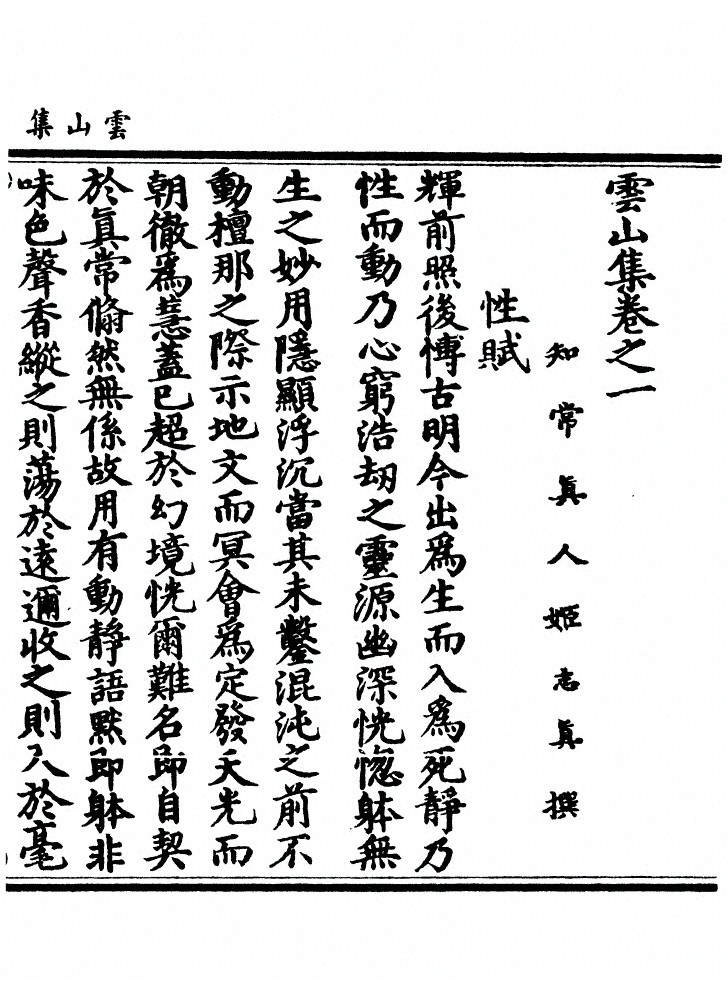 雲山集
雲山集卷之一
知常眞人姬志眞撰
性賦
輝前照後慱古明今出爲生而入爲死靜乃
性而動乃心窮浩刼之靈源幽深恍惚躰無
生之妙用隱顯浮沉當其未鑿混沌之前不
動檀那之際示地文而冥會爲定發天光而
朝徹爲慧蓋已超於幻境恍爾難名即自契
於眞常翛然無係故用有動靜語默即躰非
味色聲香縱之則蕩於遠邇收之則入於毫